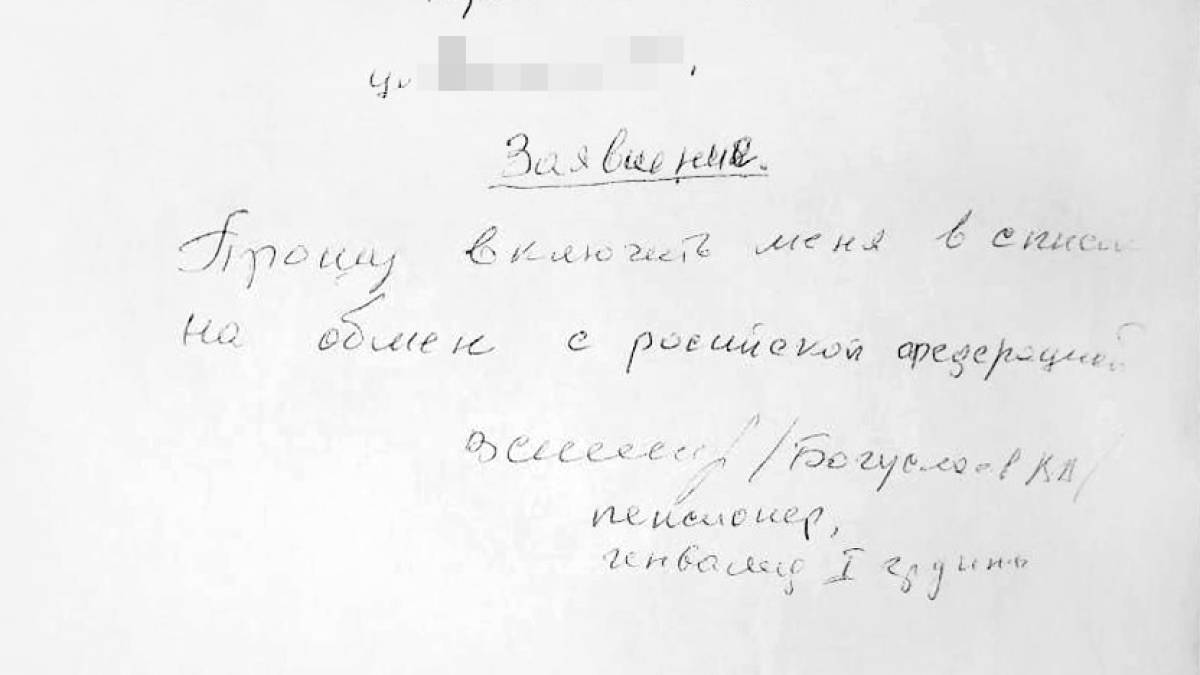 Заявление.
Прошу включить меня в список
на обмен с росийской федерацией
/Богуслаев ВА/
пенсионер,
инвалид I групы